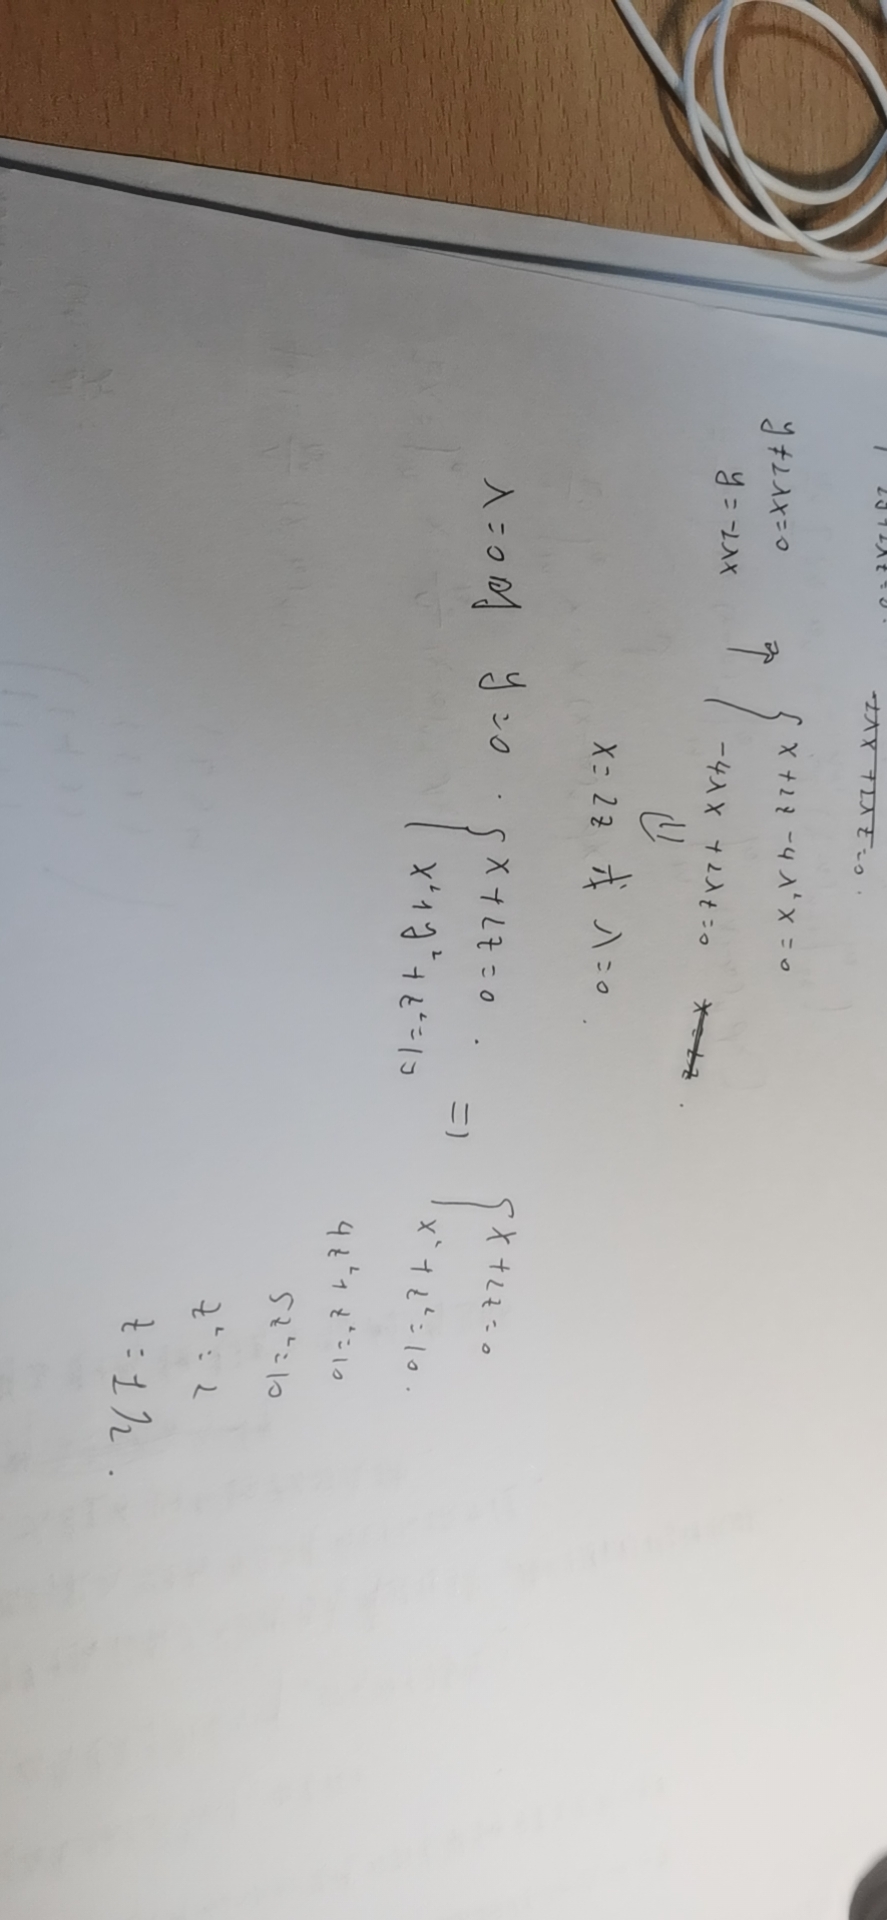 y+2λx=0
y=-2λx
{ x+2z-4λ²x=0
-4λx+2λz=0
x=2z 或 λ=0.
λ=0时 y=0. { x+2z=0.
x²+y²+z²=10
⇒ { x+2z=0
x²+z²=10.
4z²+z²=10
5z²=10
z²=2
z=±√2.